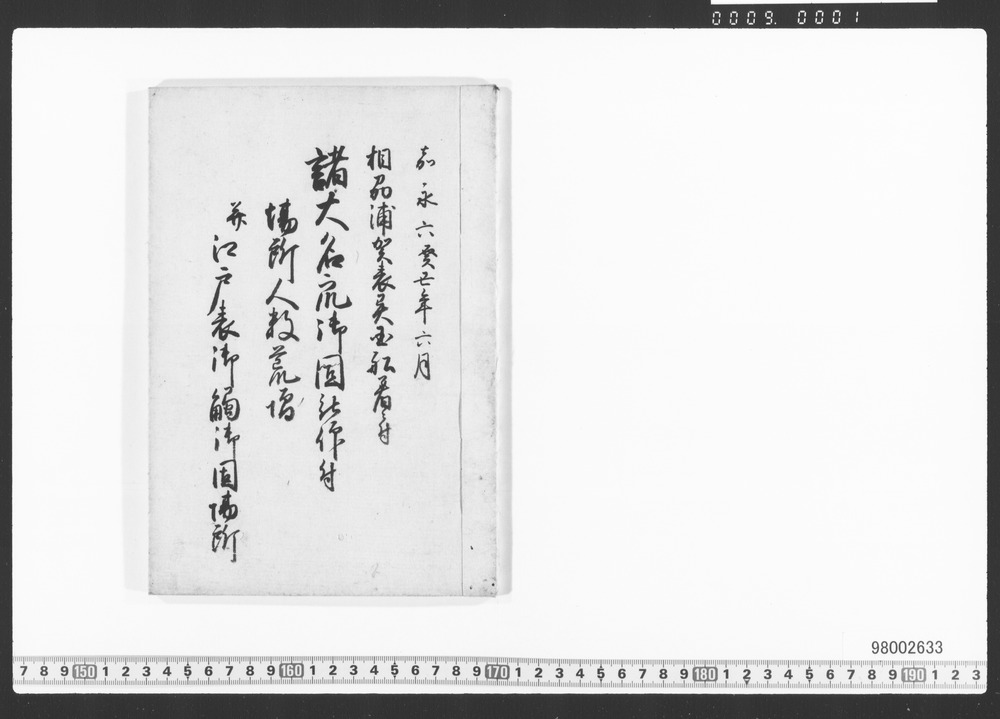 0009.0001
嘉永六癸丑年六月
相州浦賀表異国船着ニ付
諸大名衆御固被仰付
場所人数荒増
并江戸表御触御固場所
98002633
7 8 9 150 1 2 3 4 5 6 7 8 9 160 1 2 3 4 5 6 7 8 9 170 1 2 3 4 5 6 7 8 9 180 1 2 3 4 5 6 7 8 9 190 1 2 3